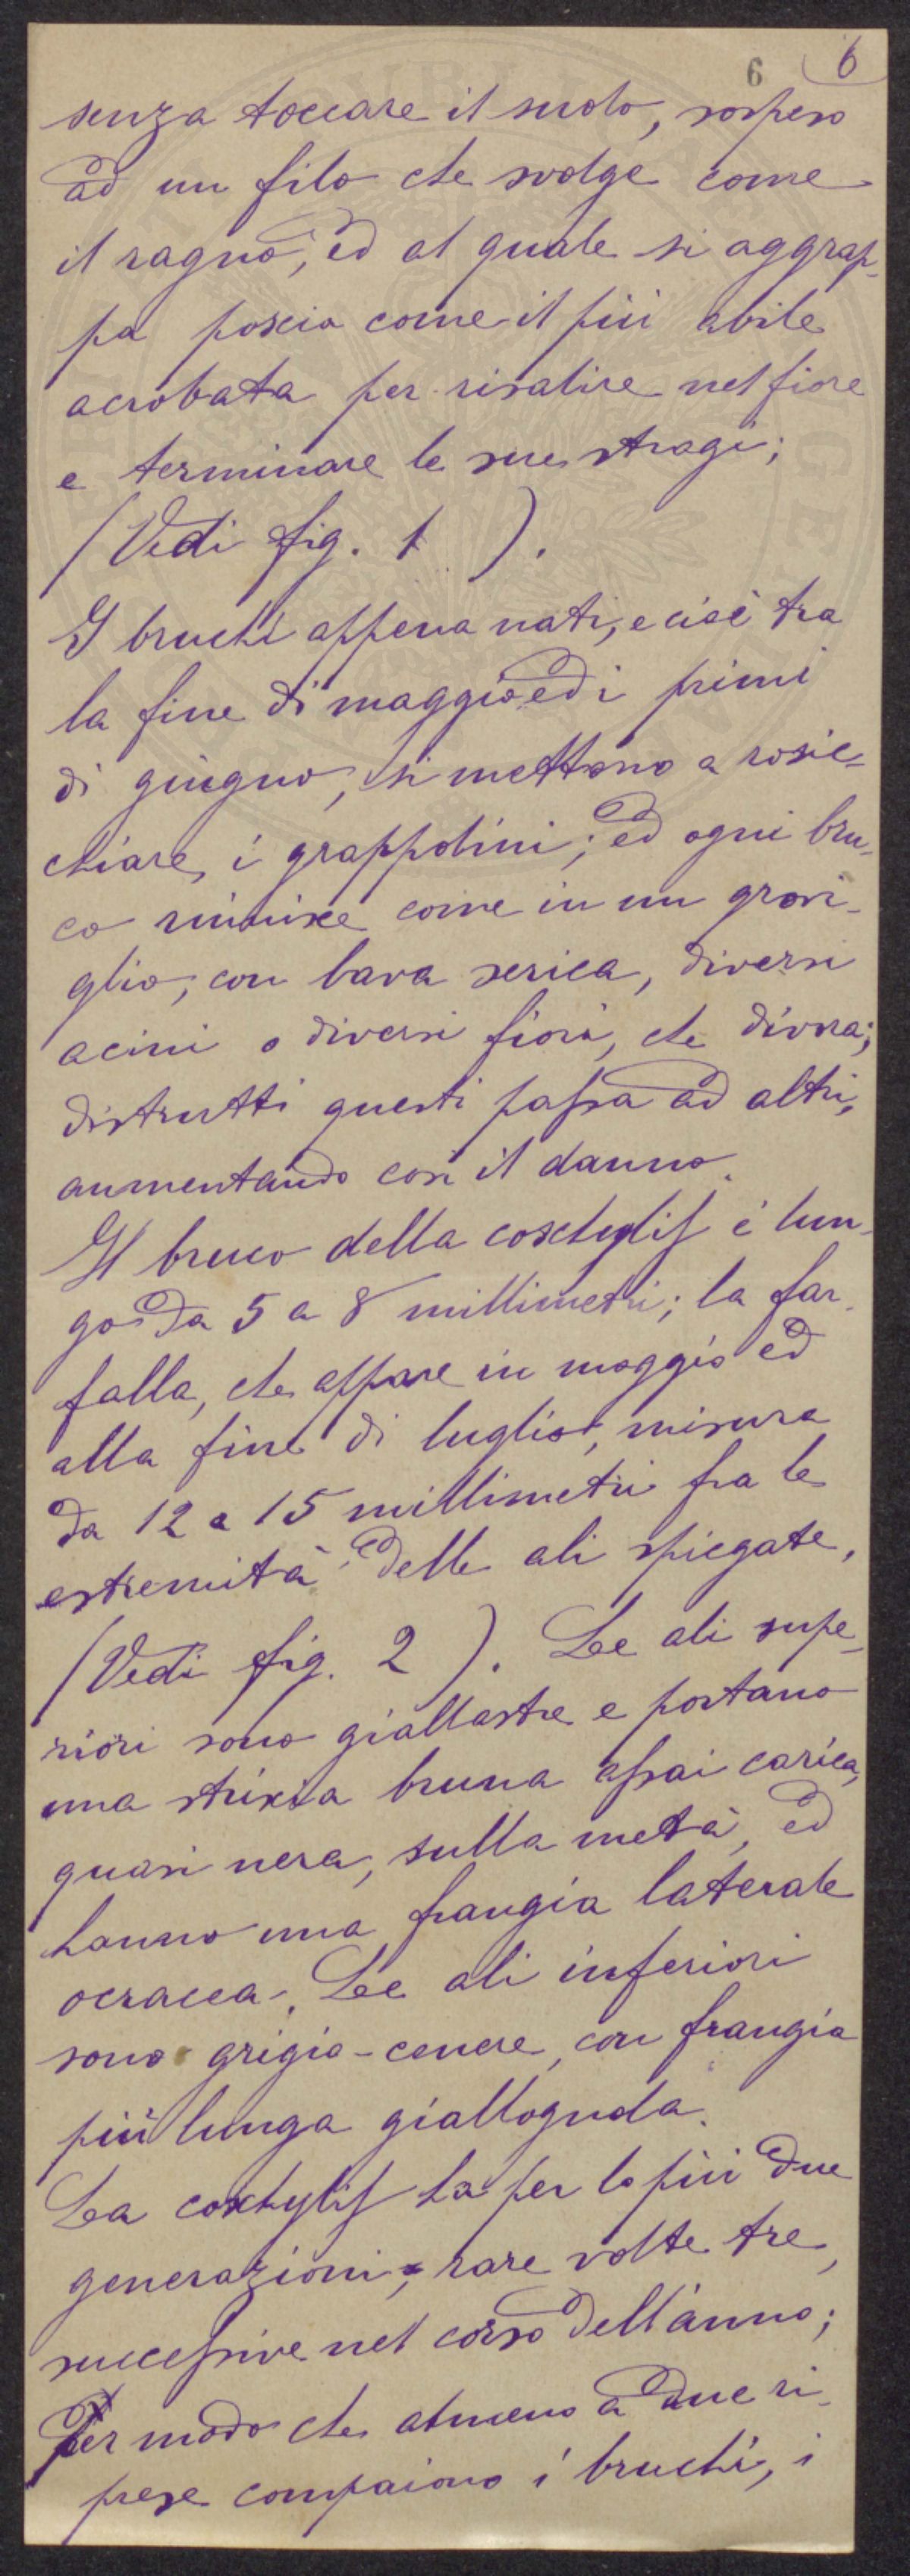 6 6
senza toccare il suolo, sospeso
ad un filo che svolge come
il ragno, ed al quale si aggrap-
pa poscia come il più abile
acrobata per risalire nel fiore
e terminare le sue stragi;
(Vedi fig. 1 ).
I bruchi appena nati, e cioè tra
la fine di maggio ed i primi
di giugno, si mettono a rosic-
chiare i grappolini; ed ogni bru-
co riunisce come in un grovi-
glio, con bava serica, diversi
acini o diversi fiori, che divora;
distrutti questi passa ad altri,
aumentando così il danno.
Il bruco della coschylis è lun-
go da 5 a 8 millimetri; la far-
falla, che appare in maggio ed
alla fine di luglio, misura
da 12 a 15 millimetri fra le
estremità delle ali spiegate,
(Vedi fig. 2 ). Le ali supe-
riori sono giallastre e portano
una striscia bruna assai carica,
quasi nera, sulla metà, ed
hanno una frangia laterale
ocracea. Le ali inferiori
sono grigio-cenere, con frangia
più lunga giallognola.
La cochylis ha per lo più due
generazioni, rare volte tre,
successive nel corso dell'anno;
Per modo che almeno a due ri-
prese compaiono i bruchi, i